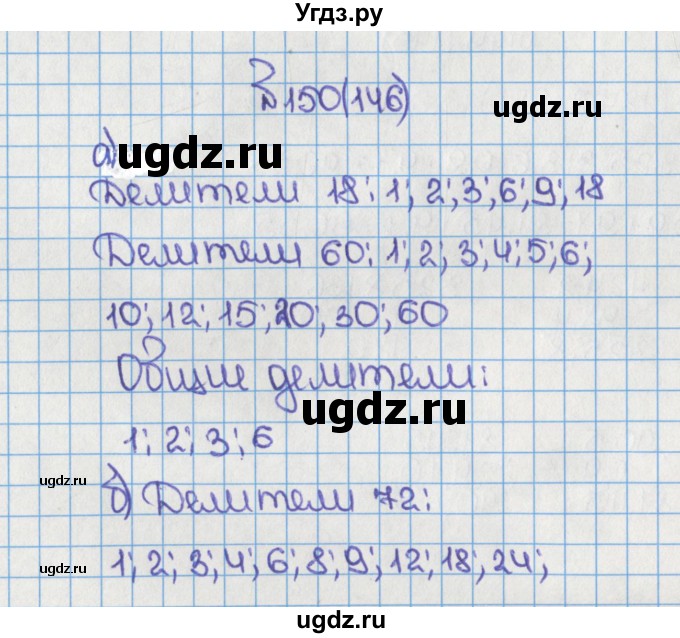 Угдз.ру
№150(146)
ugdz.ru
а)
ugdz.ru
Делители 18: 1; 2; 3; 6; 9; 18
Делители 60: 1; 2; 3; 4; 5; 6;
10; 12; 15; 20; 30; 60
Общие делители:
ugdz.ru
1; 2; 3; 6
ugdz.ru
б) Делители 72:
1; 2; 3; 4; 6; 8; 9; 12; 18; 24;
ugdz.ru
ugdz.ru
ugdz.ru